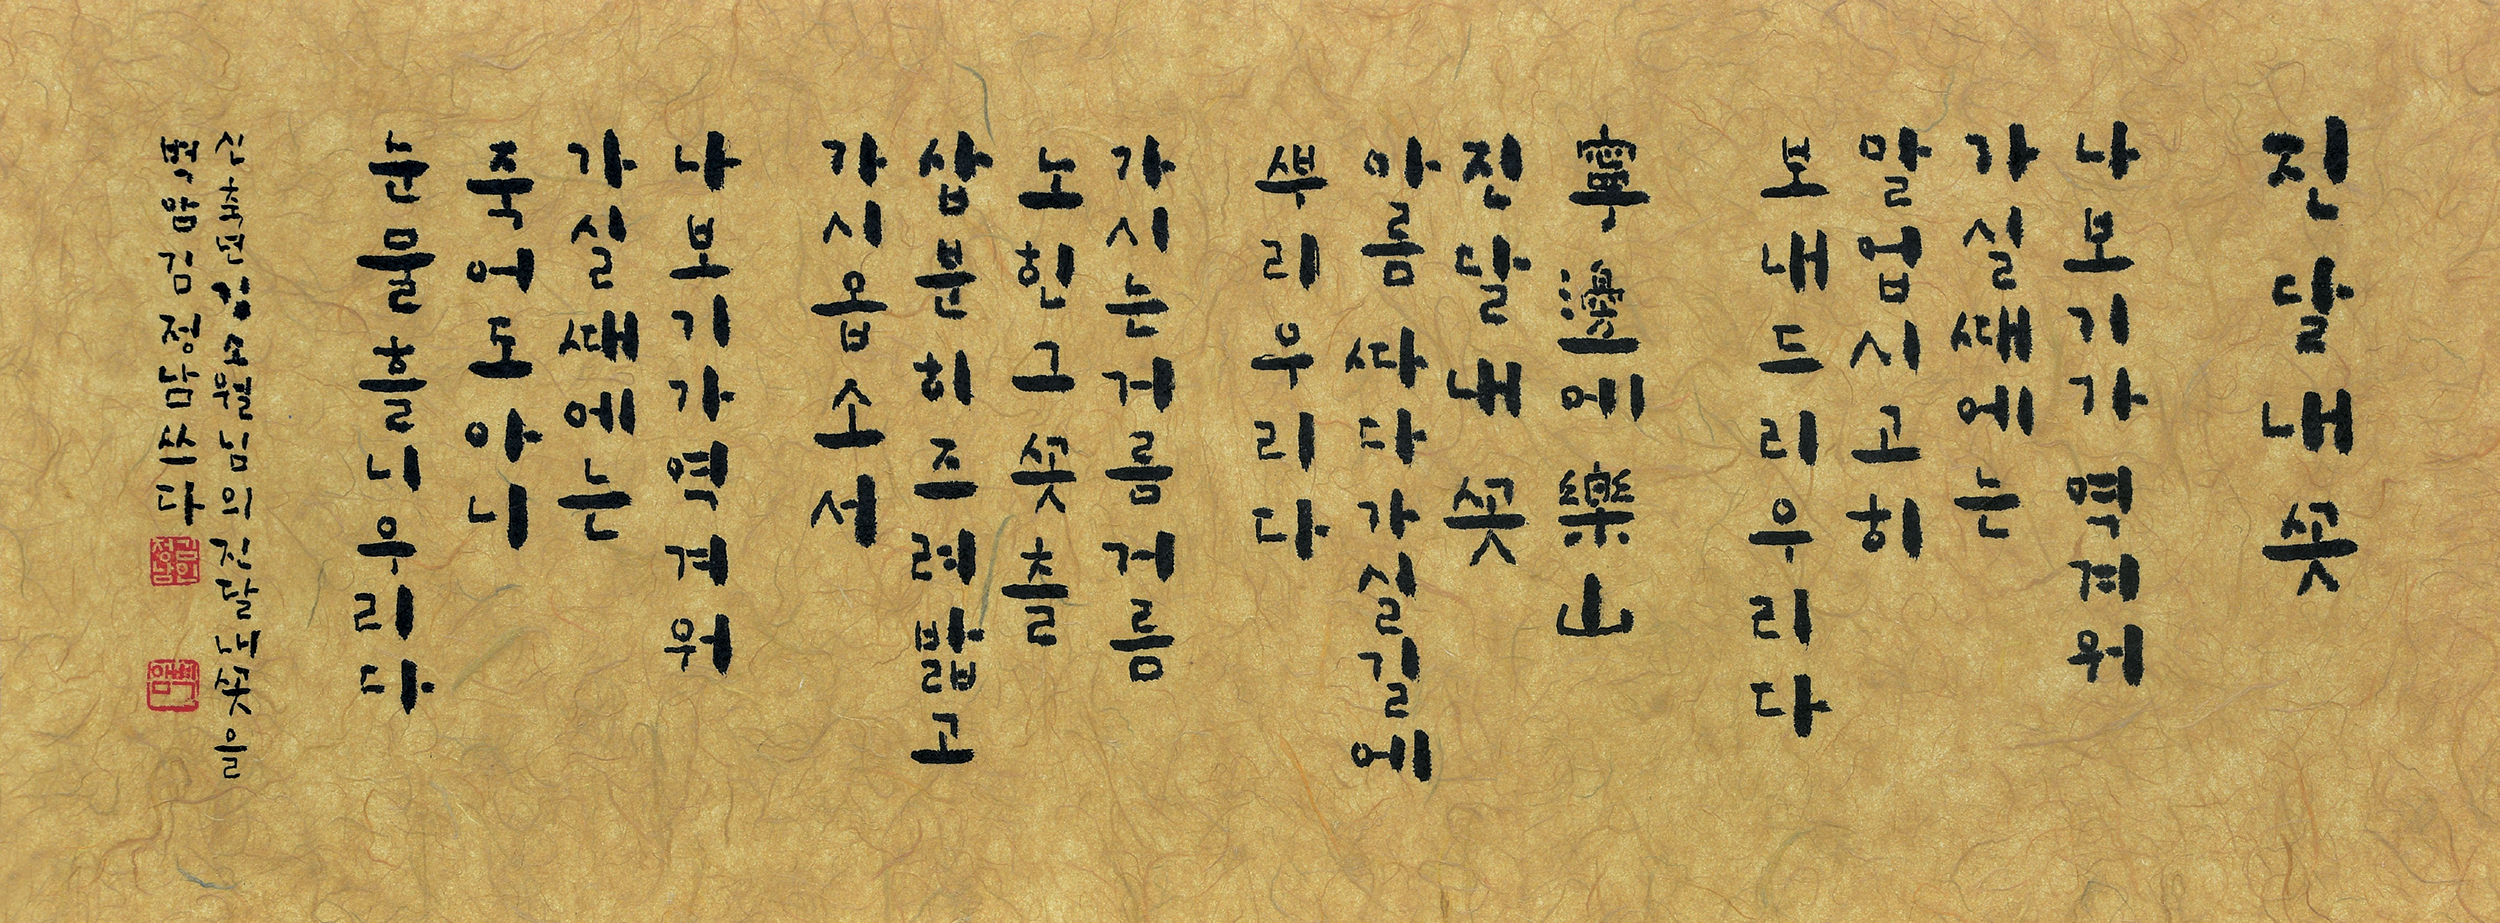 진달내ᄭᅩᆺ
나보기가역겨워
가실ᄯᅢ에는
말업시고히
보내드리우리다
寧邊에樂山
진달내ᄭᅩᆺ
아름ᄯᅡ다가실길에
ᄲᅮ리우리다
가시는거름거름
노힌그ᄭᅩᆺ츨
삽분히즈려밟고
가시옵소서
나보기가역겨워
가실ᄯᅢ에는
죽어도아니
눈물흘니우리다
신축년김소월님의진달내ᄭᅩᆺ을
벽암김정남쓰다
김인정남
벽암